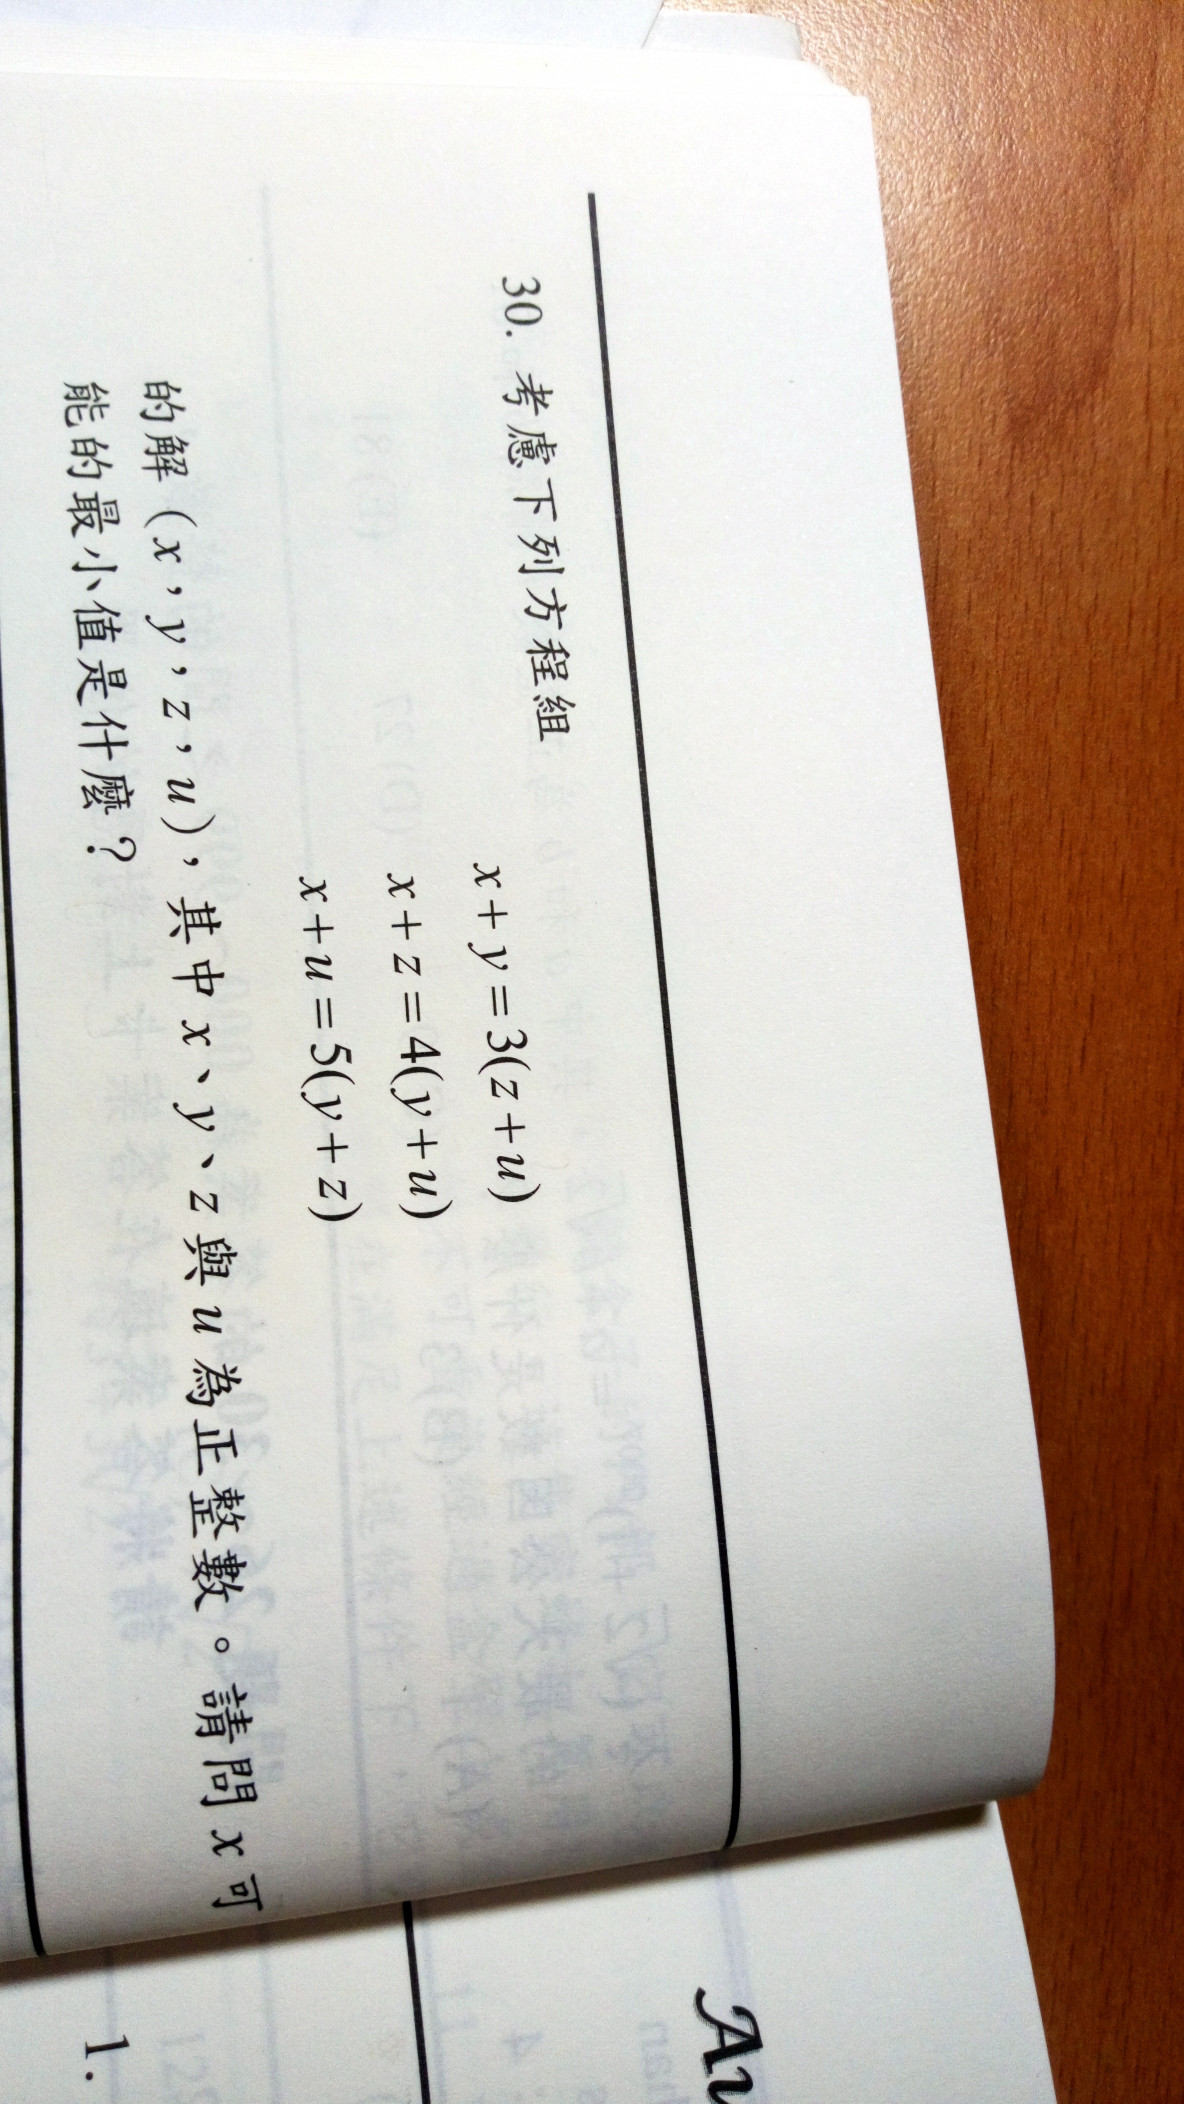 30. 考慮下列方程組
x+y=3(z+u)
x+z=4(y+u)
x+u=5(y+z)
的解(x，y，z，u)，其中x、y、z與u為正整數。請問x可
能的最小值是什麼？
Au
1.